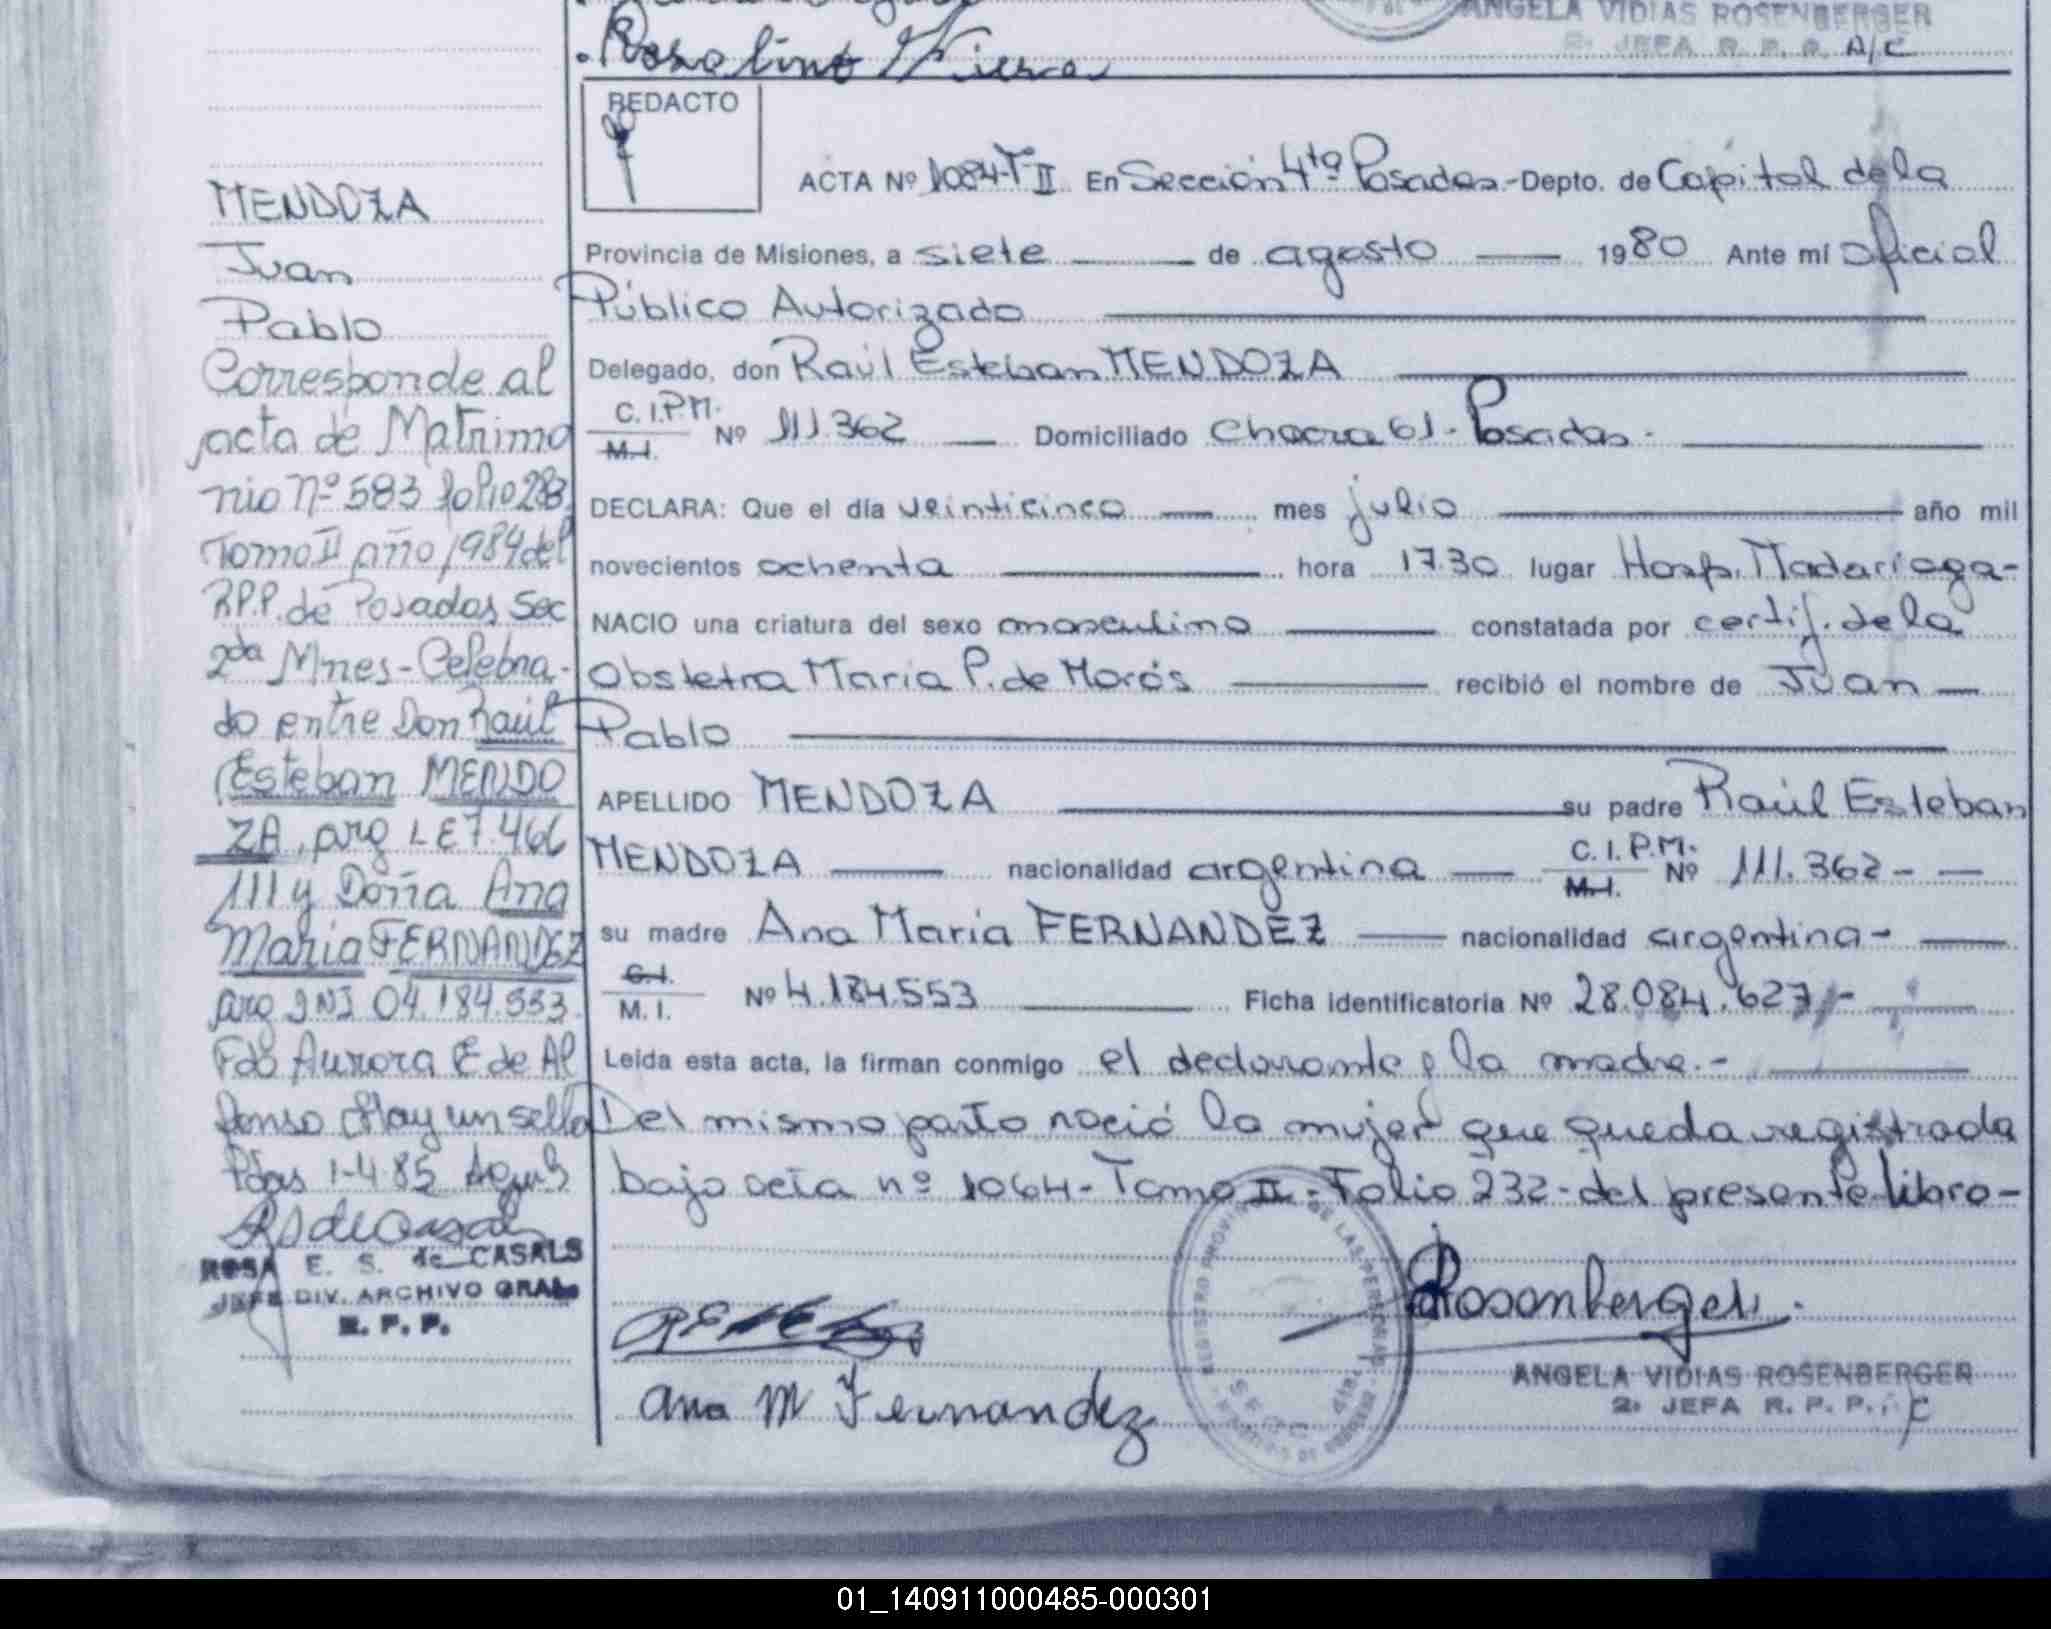 Rosalino Viera
ANGELA VIDIAS ROSENBERGER
2º JEFA R. P. P. A/C
REDACTO
MENDOZA
Juan
Pablo
Corresponde al
acta de Matrimo
nio Nº 583 folio 283
Tomo II año 1984 del
R.P.P. de Posadas Sec
2da Mnes - Celebra-
do entre Don Raúl
Esteban MENDO
ZA, arg LE 7.466
111 y Doña Ana
Maria FERNANDEZ
arg DNI 04.184.553.
Fdo Aurora E de Al
fonso Hay un sello
Pdas 1-4-85
ROSA E. S. de CASALS
JEFE DIV. ARCHIVO GRAL.
R. P. P.
ACTA Nº 1084-T II En Sección 4ta Posadas - Depto. de Capital de la
Provincia de Misiones, a siete de agosto 1980 Ante mí Oficial
Público Autorizado
Delegado, don Raúl Esteban MENDOZA
C. I. P.M.
M. I. Nº 111.362 Domiciliado Chacra 61 - Posadas -
DECLARA: Que el día veinticinco mes julio año mil
novecientos ochenta hora 17.30 lugar Hosp. Madariaga-
NACIO una criatura del sexo masculino constatada por certif. de la
Obstetra Maria P. de Morós recibió el nombre de Juan
Pablo
APELLIDO MENDOZA su padre Raúl Esteban
MENDOZA nacionalidad argentina C. I. P.M.
M. I. Nº 111.362 -
su madre Ana Maria FERNANDEZ nacionalidad argentina -
C. I.
M. I. Nº 4.184.553 Ficha identificatoria Nº 28.084.627 -
Leída esta acta, la firman conmigo el declarante y la madre.-
Del mismo parto nació la mujer que queda registrada
bajo acta nº 1064 - Tomo II - Folio 232 - del presente libro -
Rosenberger
Ana M Fernandez
ANGELA VIDIAS ROSENBERGER
2º JEFA R. P. P. A/C
01_140911000485-000301